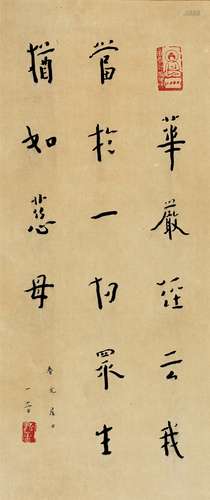 華嚴經云我
當於一切眾生
猶如慈母
一音